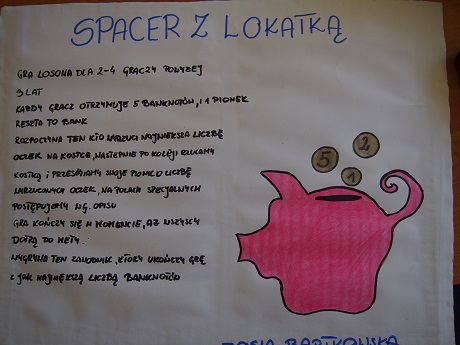 SPACER Z LOKATKĄ
GRA LOSOWA DLA 2-4 GRACZY POWYŻEJ
9 LAT
KAŻDY GRACZ OTRZYMUJE 5 BANKNOTÓW, I 1 PIONEK
RESZTA TO BANK
ROZPOCZYNA TEN KTO WYRZUCI NAJWIĘKSZĄ LICZBĘ
OCZEK NA KOSTCE, NASTĘPNIE PO KOLEJI RZUCAMY
KOSTKĄ I PRZESUWAMY SWOJE PIONKI O LICZBĘ
WYRZUCONYCH OCZEK, NA POLACH SPECJALNYCH
POSTĘPUJEMY WG. OPISU
GRA KOŃCZY SIĘ W MOMENCIE, AŻ WSZYSCY
DOTRĄ DO METY.
WYGRYWA TEN ZAWODNIK, KTÓRY UKOŃCZY GRĘ
Z JAK NAJWIĘKSZĄ LICZBĄ BANKNOTÓW
2
5
1
ZOSIA BARTKOWSKA